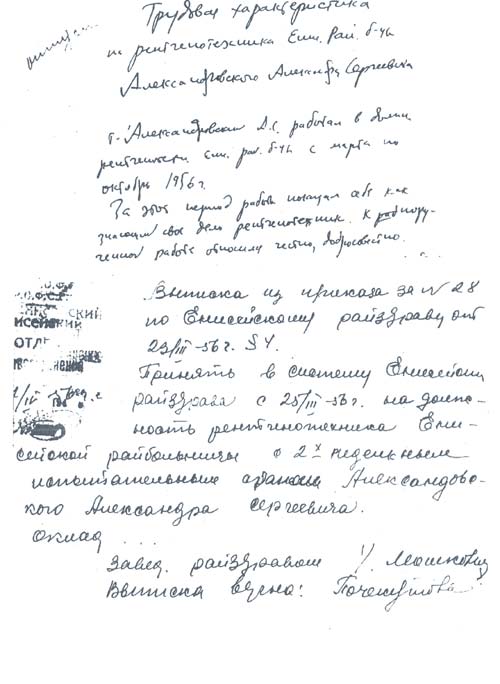 Трудовая характеристика
на рентгенотехника Ени. Рай. б-цы
Александровского Александра Сергеевича
т. Александровский А.С. работал в должн.
рентгенотехн. Ени. рай. б-цы с марта по
октябрь 1956 г.
За этот период работы показал себя как
знающий свое дело рентгенотехник. К
работе относился честно, добросовестно.
Р.С.Ф.С.Р.
СКИЙ
ИСЕЙСКИЙ
ОТД
Выписка из приказа за № 28
по Енисейскому райздраву от
23/III-56 г. § 4.
Принять в систему Енисейск
райздрава с 25/III-56 г. на долж-
ность рентгенотехника Ени-
сейской райбольницы с 2х недельным
испытательным сроком Александровс-
кого Александра Сергеевича.
Оклад ...
Завед. райздравом
Выписка верна: